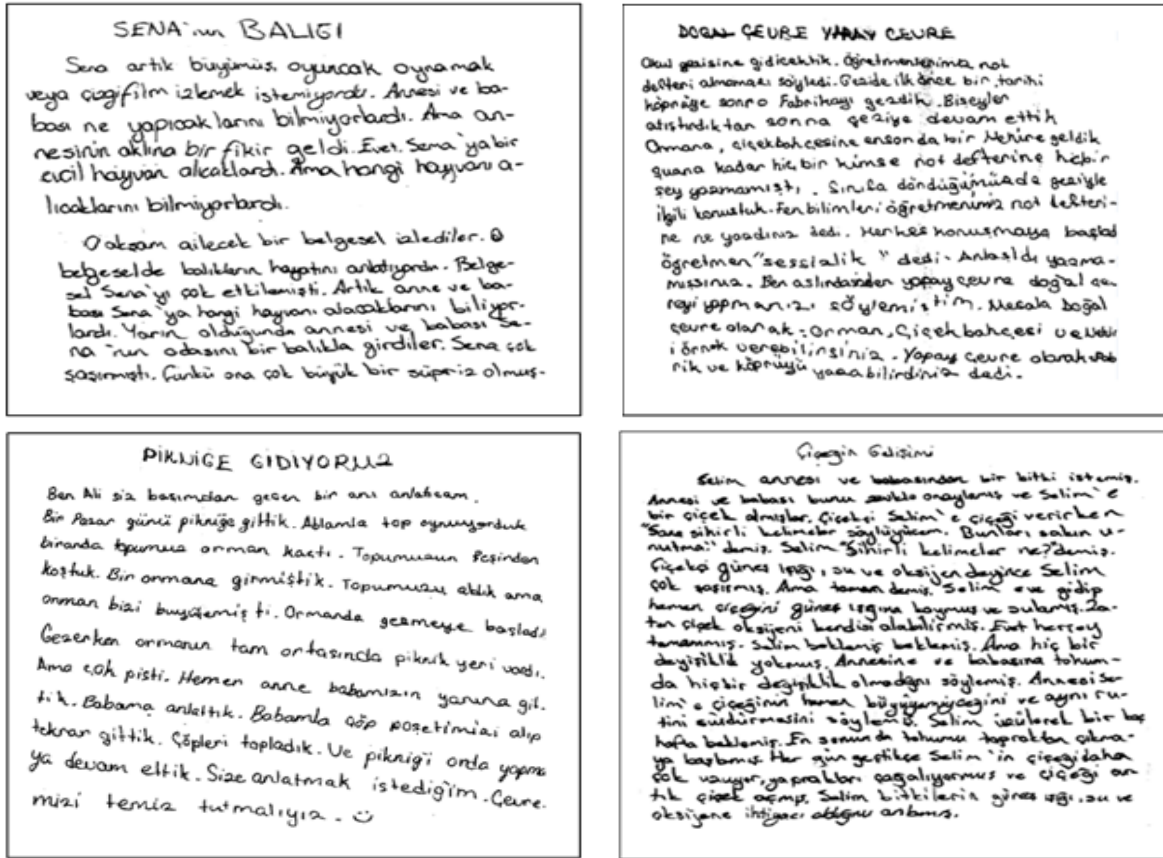 SENA'nın BALIĞI
Sena artık büyümüş, oyuncak oynamak
veya çizgifilm izlemek istemiyordu. Annesi ve ba-
bası ne yapıcaklarını bilmiyorlardı. Ama an-
nesinin aklına bir fikir geldi. Evet. Sena'ya bir
evcil hayvan alıcaklardı. Ama hangi hayvanı a-
lıcaklarını bilmiyorlardı.
O akşam ailecek bir belgesel izlediler. O
belgeselde balıkların hayatını anlatıyordu. Belge-
sel Sena'yı çok etkilemişti. Artık anne ve ba-
bası Sena'ya hangi hayvanı alacaklarını biliyor-
lardı. Yarın olduğunda annesi ve babası Se-
na'nın odasını bir balıkla girdiler. Sena çok
şaşırmıştı. Çünkü ona çok büyük bir süpriz olmuş-
DOĞAL ÇEVRE YAPAY ÇEVRE
Okul gezisine gidicektik. Öğretmenlerimiz not
defteri almamızı söyledi. Gezide ilk önce bir tarihi
köprüye sonra Fabrikayı gezdik. Bişeyler
atıştırdıktan sonra geziye devam ettik
Ormana, çiçekbahçesine enson da bir Nehire geldik
şuana kadar hiç bir kimse not defterine hiçbir
şey yazmamıştı. Sınıfa döndüğümüzde geziyle
ilgili konuştuk. Fen bilimleri öğretmenimiz not defteri-
ne ne yazdınız dedi. Herkes konuşmaya başladı
öğretmen "sessizlik" dedi. Anlaşıldı yazma-
mışsınız. Ben aslında sizden yapay çevre doğal çev-
reyi yapmanızı söylemiştim. Mesala Doğal
çevre olarak: Orman, Çiçek bahçesi ve Nehir
i örnek verebilirsiniz. Yapay çevre olarak Fab
rik ve köprüyü yazabilirdiniz dedi.
PİKNİĞE GİDİYORUZ
Ben Ali siz basımdan geçen bir anı anlatıcam.
Bir Pazar günü pikniğe gittik. Ablamla top oynuyorduk
biranda topumuz orman kaçtı. Topumuzun peşinden
koştuk. Bir ormana girmiştik. Topumuzu aldık ama
orman bizi büyülemişti. Ormanda gezmeye başladı
Gezerken ormanın tam ortasında piknik yeri vardı.
Ama çok pisti. Hemen anne babamızın yanına git-
tik. Babama anlattık. Babamla çöp poşetimizi alıp
tekrar gittik. Çöpleri topladık. Ve pikniği orda yapma
ya devam ettik. Size anlatmak istediğim. Çevre-
mizi temiz tutmalıyız. ☺
Çiçeğin Gelişimi
Selim annesi ve babasından bir bitki istemiş.
Annesi ve babası bunu zevkle onaylamış ve Selim'e
bir çiçek almışlar. Çiçekçi Selim'e çiçeği verirken
"Sana sihirli kelimeler söylüyücem. Bunları sakın u-
nutma!" demiş. Selim "Sihirli kelimeler ne?" demiş.
Çiçekçi güneş ışığı, su ve oksijen deyince Selim
çok şaşırmış. Ama tamam demiş. Selim eve gidip
hemen çiçeğini güneş ışığına koymuş ve sulamış. Za-
ten çiçek oksijeni kendisi alabilirmiş. Evet herşey
tamammış. Selim beklemiş beklemiş. Ama hiç bir
değişiklik yokmuş. Annesine ve babasına tohum-
da hiçbir değişiklik olmadığını söylemiş. Annesi Se-
lim'e çiçeğinin hemen büyüyemiyceğini ve aynı ru-
tini sürdürmesini söylemiş. Selim üzülerek bir kaç
hafta beklemiş. En sonunda tohumu topraktan çıkma-
ya başlamış. Her gün geçtikçe Selim'in çiçeği daha
çok uzuyor, yaprakları çoğalıyormuş ve çiçeği ar-
tık çiçek açmış. Selim bitkilerin güneş ışığı, su ve
oksijene ihtiyacı olduğunu anlamış.